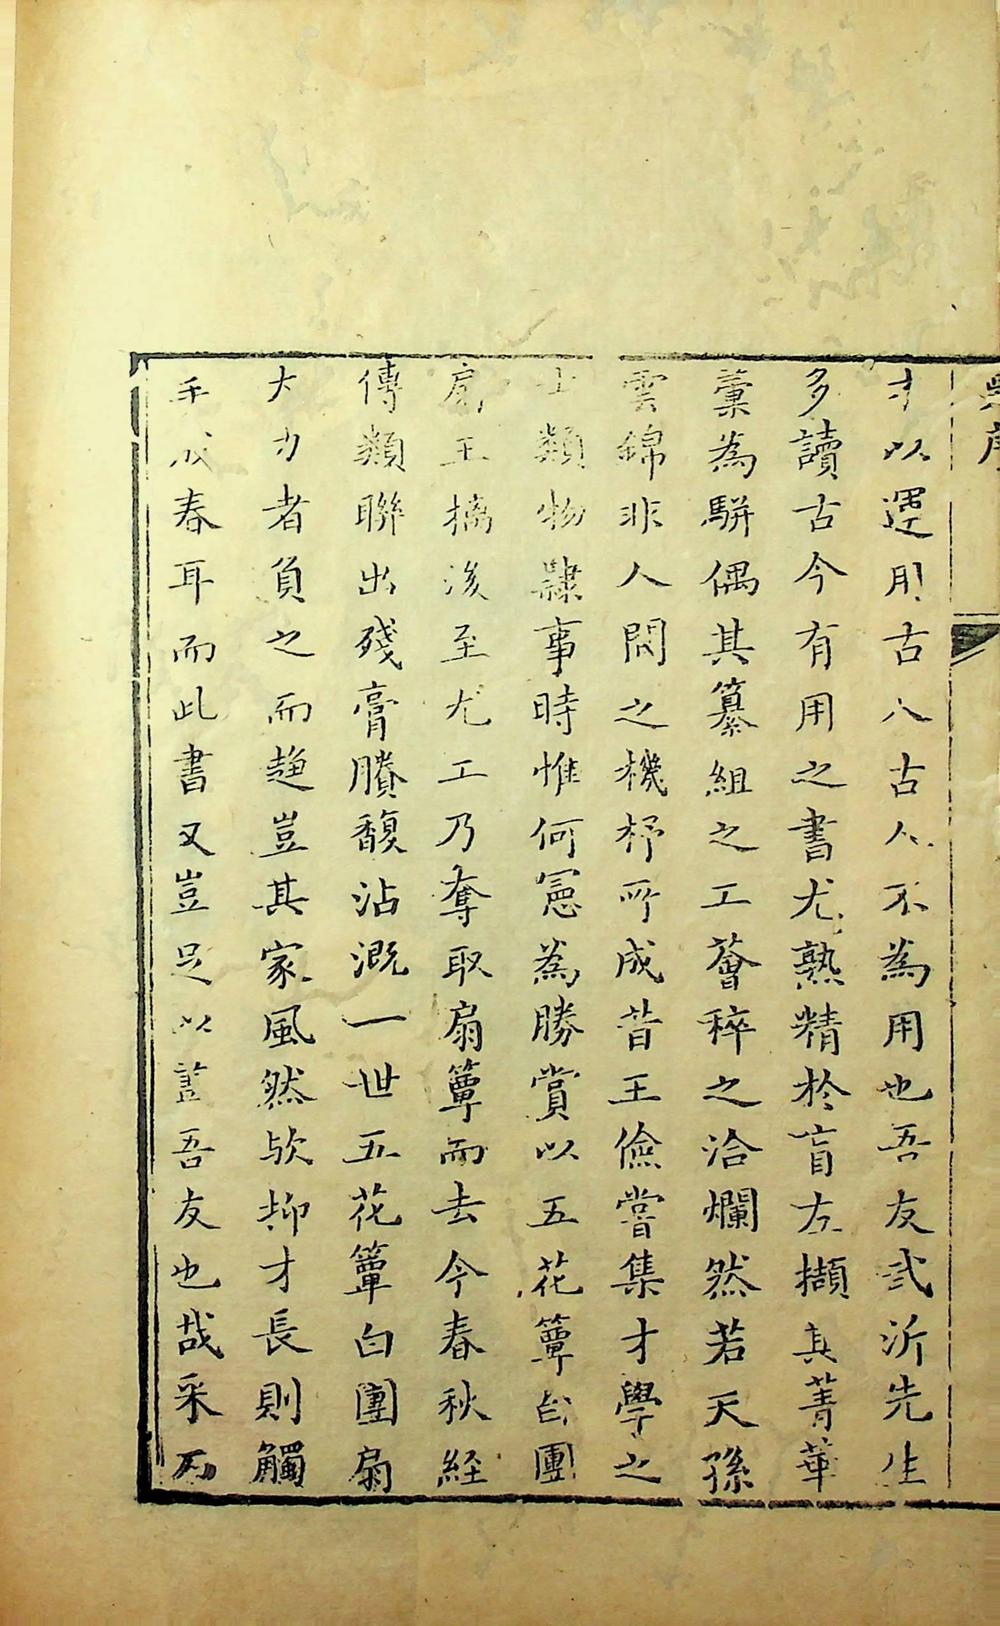 吳序
才以運用古人古人不為用也吾友弍沂先生
多讀古今有用之書尤熟精於盲左擷其菁華
藁為駢偶其纂組之工薈稡之洽爛然若天孫
雲錦非人間之機杼所成昔王儉嘗集才學之
士類物隸事時惟何憲為勝賞以五花簟白團
扇王摛後至尤工乃奪取扇簟而去今春秋經
傳類聯出殘膏賸馥沾溉一世五花簟白團扇
大力者負之而趨豈其家風然歟抑才長則觸
手成春耳而此書又豈足以盡吾友也哉采